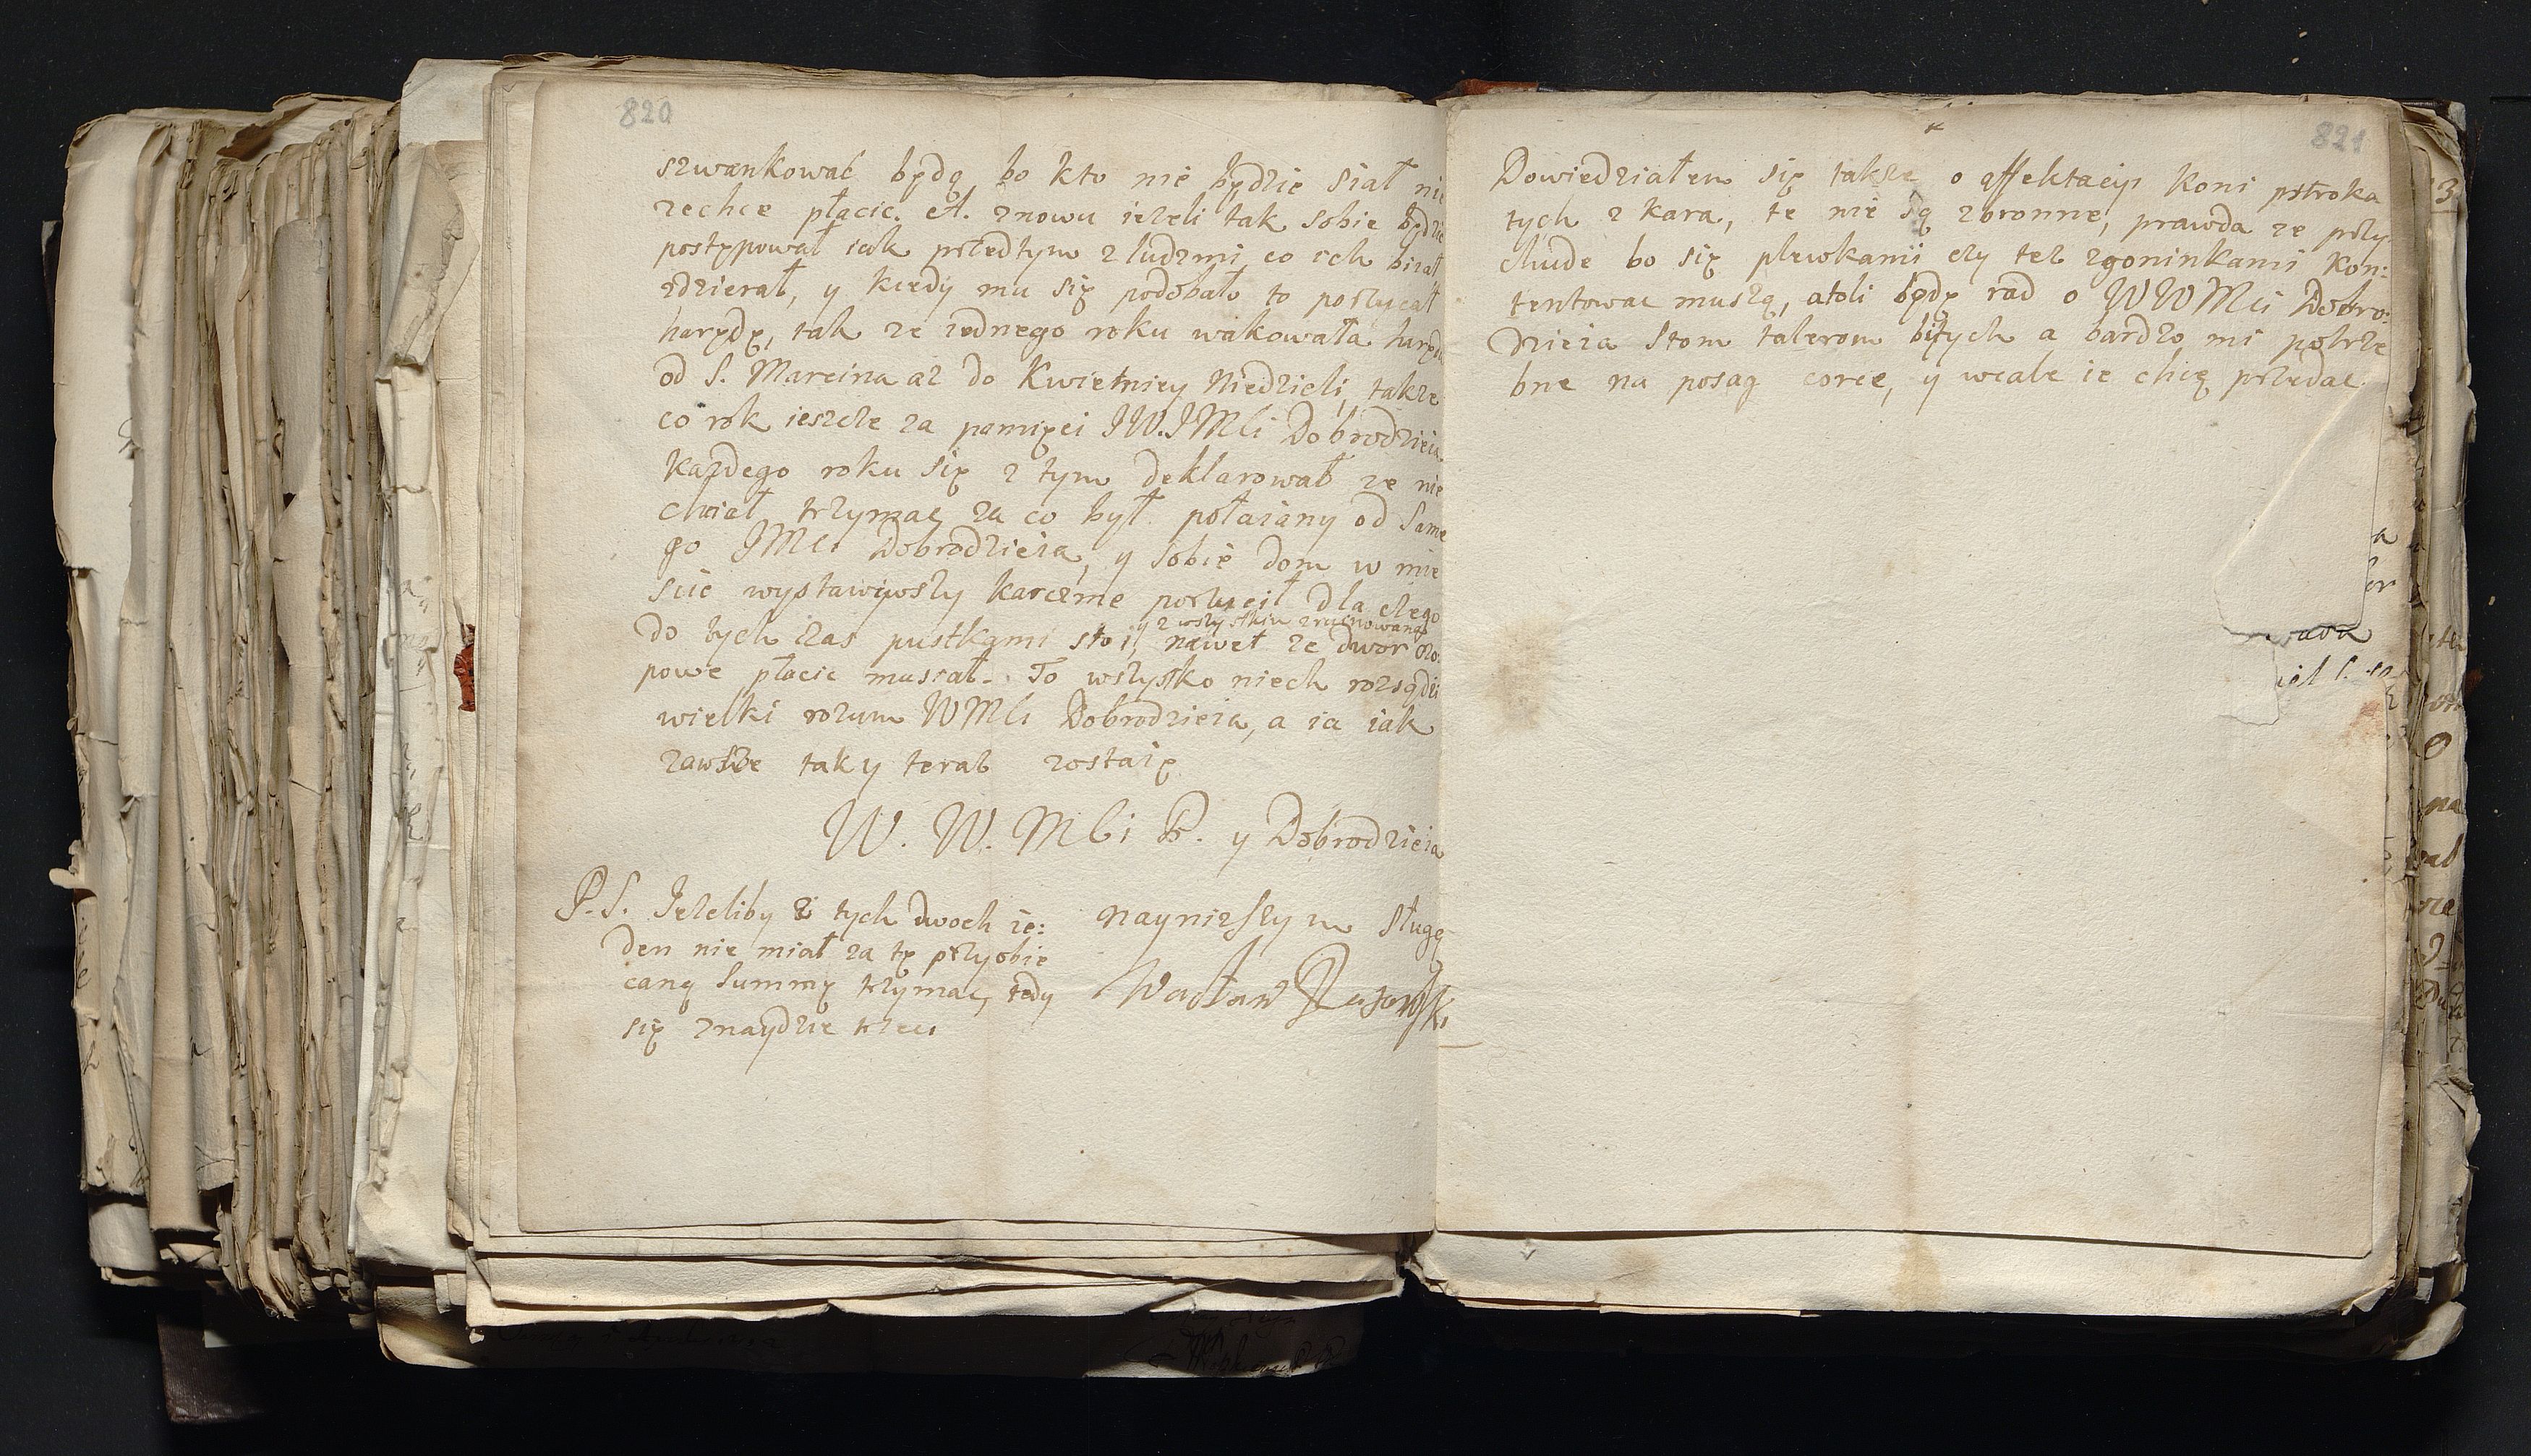 820
szwankować będą bo kto nie będzie siał nie
zechce płacic. A. znowu iezeli tak sobie będzie
postępował iak przedtym z ludzmi co ich birał
zdzierał, y kiedy mu się podobało to porzucał
harędę, tak ze iednego roku wakowała haręda
od S. Marcina az do Kwietniey Niedzieli, takze
co rok ieszcze za pamięci JW. JMCi Dobrodzieia
Kazdego roku się z tym deklarował ze nie
chciał trzymac za co był połaiany od Same
go JMCi Dobrodzieia, y sobie dom w mie
scie wystawiwszy karczme porzucił dla czego
y z wszystkim zruinowana
do tych czas pustkami stoi, nawet ze dwor czo:
powe płacic musiał. To wszystko niech rozsądzi
wielki rozum WMCi Dobrodzieia, a ia iak
zawsze tak y teraz zostaię
W. W. MCi P. y Dobrodzieia
naynizszym sługą
Wacław
P. S. Iezeliby z tych dwoch ie:
den nie miał za tę przyobie
caną summę trzymac, tedy
się znaydzie trzeci
821
Dowiedziałem się takze o affektacyi Koni pstroka
tych z kara, te nie są zbronne, prawda ze przy
chude bo się plewkami czy tez zgoninkami Kon:
tentowac muszą, atoli będę rad o WWMCi Dobro:
dzieia stom talerow bitych a bardzo mi potrze
bne na posag corce, y wcale ie chcę przedac.